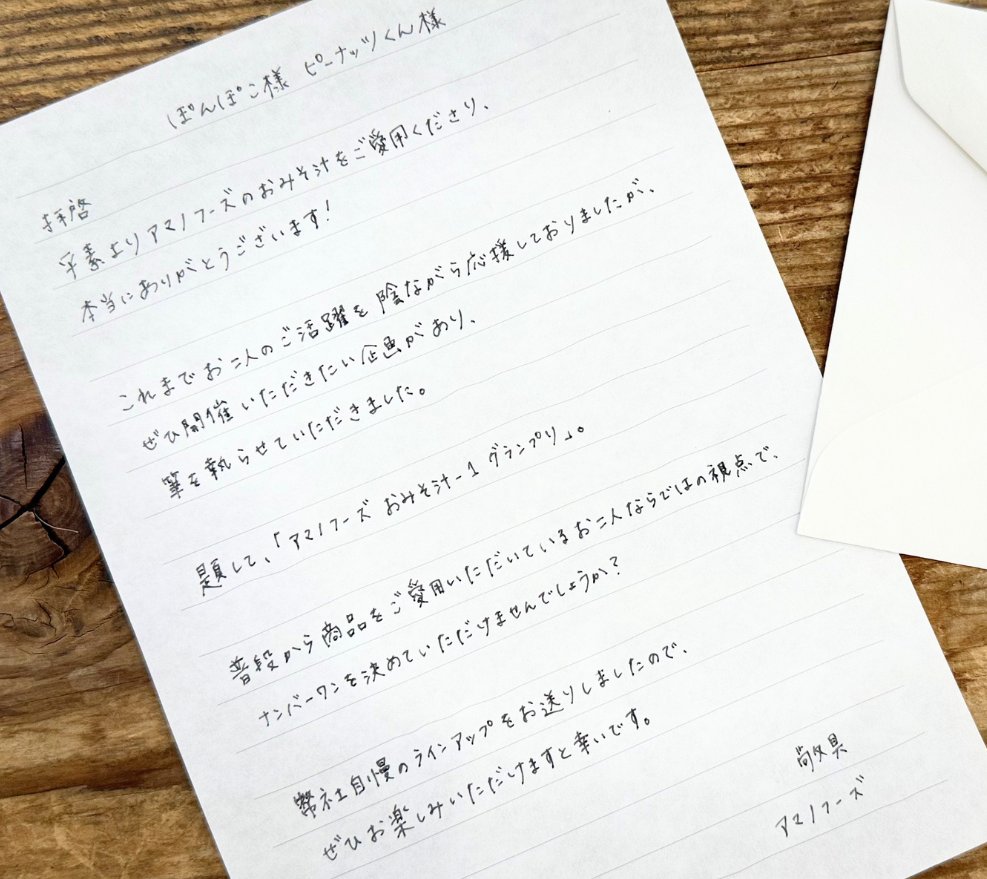 ぽんぽこ様 ピーナッツくん様
拝啓
平素よりアマノフーズのおみそ汁をご愛用くださり、
本当にありがとうございます!
これまでお二人のご活躍を陰ながら応援しておりましたが、
ぜひ開催いただきたい企画があり、
筆を執らせていただきました。
題して、「アマノフーズ おみそ汁-1グランプリ」。
普段から商品をご愛用いただいているお二人ならではの視点で、
ナンバーワンを決めていただけませんでしょうか?
弊社自慢のラインアップをお送りしましたので、
ぜひお楽しみいただけますと幸いです。
敬具
アマノフーズ